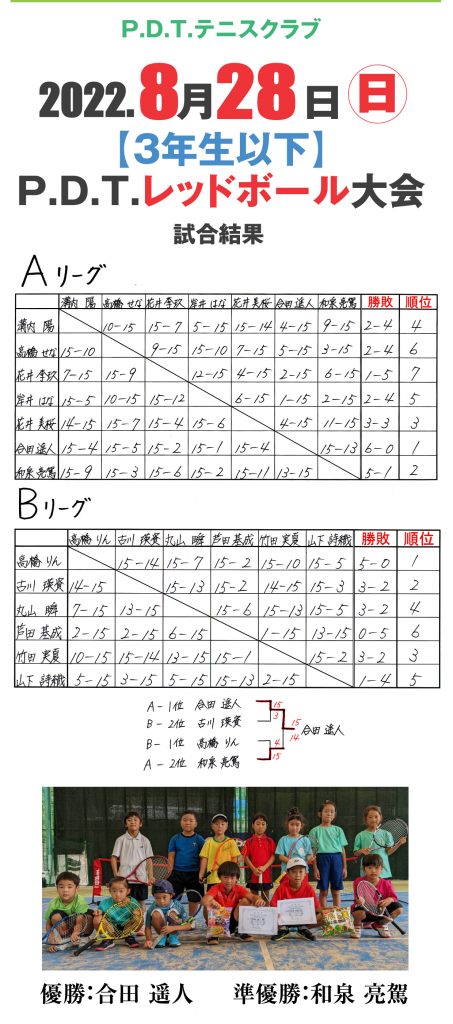 P.D.T.テニスクラブ
2022.8月28日 日
【3年生以下】
P.D.T.レッドボール大会
試合結果
Aリーグ
溝内 陽 高橋 せな 花井 李玖 岸井 はな 花井 美桜 合田 遥人 和泉 亮駕 勝敗 順位
溝内 陽 10-15 15-7 5-15 15-14 4-15 9-15 2-4 4
高橋 せな 15-10 9-15 15-10 7-15 5-15 3-15 2-4 6
花井 李玖 7-15 15-9 12-15 4-15 2-15 6-15 1-5 7
岸井 はな 15-5 10-15 15-12 6-15 1-15 2-15 2-4 5
花井 美桜 14-15 15-7 15-4 15-6 4-15 11-15 3-3 3
合田 遥人 15-4 15-5 15-2 15-1 15-4 15-13 6-0 1
和泉 亮駕 15-9 15-3 15-6 15-2 15-11 13-15 5-1 2
Bリーグ
高橋 りん 古川 瑛資 丸山 瞬 芦田 基成 竹田 実夏 山下 詩織 勝敗 順位
高橋 りん 15-14 15-7 15-2 15-10 15-5 5-0 1
古川 瑛資 14-15 15-13 15-2 14-15 15-3 3-2 2
丸山 瞬 7-15 13-15 15-6 15-13 15-5 3-2 4
芦田 基成 2-15 2-15 6-15 1-15 13-15 0-5 6
竹田 実夏 10-15 15-14 13-15 15-1 15-2 3-2 3
山下 詩織 5-15 3-15 5-15 15-13 2-15 1-4 5
A-1位 合田 遥人 15
B-2位 古川 瑛資 3
15 合田 遥人
14
B-1位 高橋 りん 4
A-2位 和泉 亮駕 15
優勝:合田 遥人 準優勝:和泉 亮駕